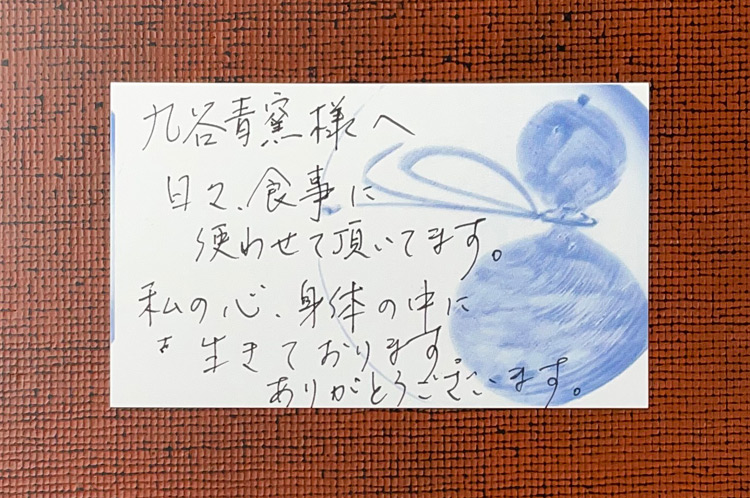 九谷青窯様へ
日々、食事に
使わせて頂いてます。
私の心、身体の中に
生きております。
ありがとうございます。